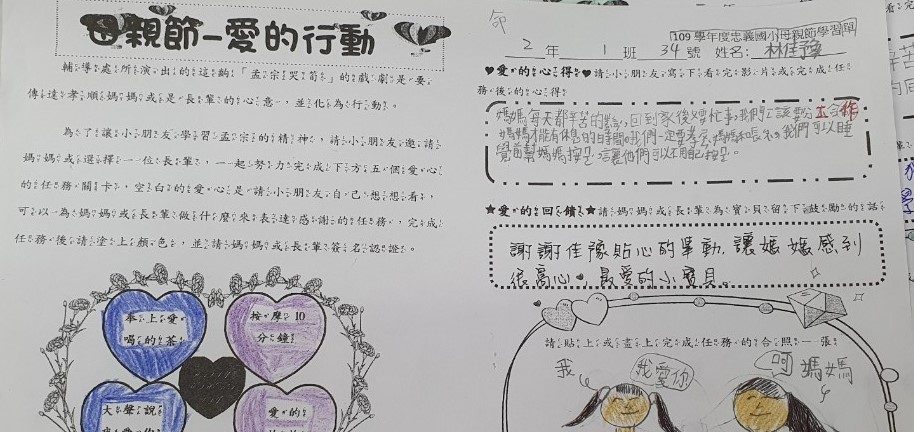 母親節-愛的行動
輔導處所演出的這齣「孟宗哭筍」的戲劇是要
傳達孝順媽媽或是長輩的心意,並化為行動。
為了讓小朋友學習孟宗的精神,請小朋友邀請
媽媽或選擇一位長輩,一起努力完成下方五個愛心
的任務關卡,空白的愛心是請小朋友自己想想看,
可以為媽媽或長輩做什麼來表達感謝的任務,完成
任務後請塗上顏色,並請媽媽或長輩簽名認證。
奉上愛
喝的茶
按摩10
分鐘
大聲說
愛的
109學年度忠義國小母親節學習單
2年 1班 34號 姓名:林佳豫
♥愛的心得♥請小朋友寫下看完影片或完成任
務後的心得
媽媽每天都辛苦的
回到家後又要忙家事,我們應該要分工合作
媽媽才能有休息的時間。我們一定要孝
我們可以在睡
覺前幫媽媽按
★愛的回饋★請媽媽或長輩為寶貝留下鼓勵的話
謝謝佳豫貼心的舉動,讓媽媽感到
很高心,最愛的小寶貝。
請貼上或畫上完成任務的合照一張
我
我愛你
呵
媽媽